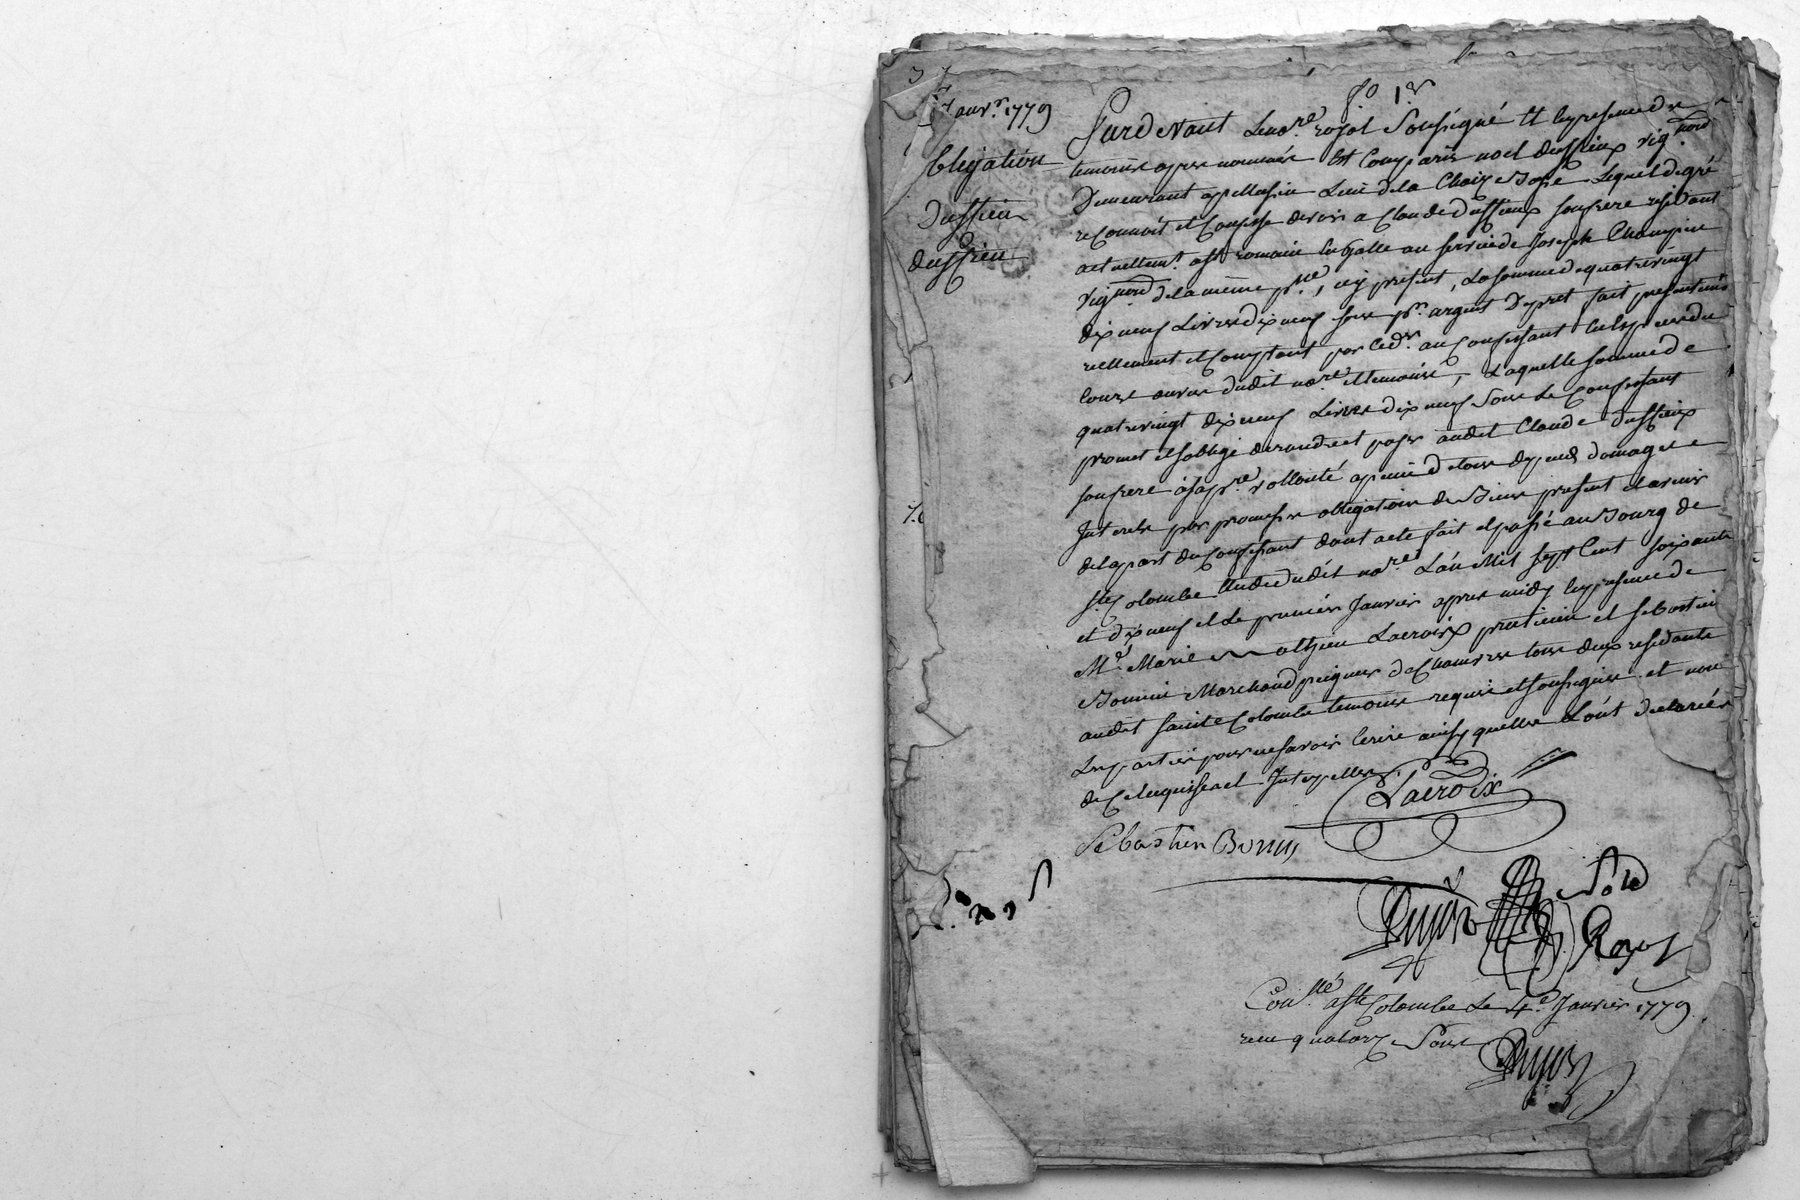 f.o 1.er
1er janv.r 1779
obligation
dussieu
dussieu
Pardevant le no.re royal soussigné et en presence des
temoins apres nommés est comparu noel dussieux vig.nron
demeurant a lieu de la Chaize lequel de gré
reconnoit et confesse devoir a Claude dussieux son frere residant
actuellem.t a st romain en galle au service de Joseph Champin
vig.nron de la même p.sse, icy present, la somme de quatrevingt
dix neuf livres dix neuf sous p.r argent depret fait presentem.t
reellement et comptant par led.t au confessant en especes du
cours au vue dudit no.re et temoins, laquelle somme de
quatrevingt dix neuf livres dix neuf sous le confessant
promet et soblige de rendre et payer audit Claude dussieux
son frere a sa p.re vollonté a peine de tous depends domages et
Interets par promesse obligation de biens present et avenir
de la part du confessant dont acte fait et passé au bourg de
ste Colombe Etude dudit no.re L'an Mil sept Cent soixante
et dix neuf et le premier Janvier apres midy en presence de
M.e Marie mathieu Lacroix praticien et sebastien
Bonnin Marchand peigneur de chanvres tous deux residants
audit sainte Colombe temoins requis et soussignés et non
les parties pour ne savoir ecrire ainsy quelles L'ont declarés
de ce enquises et Interpellées.
Lacroix
Sebastien Bonnin
Dujon No.re
Royal
Con.llé a ste Colombe le 4.e Janvier 1779
reçu quatorze sous
Dujon